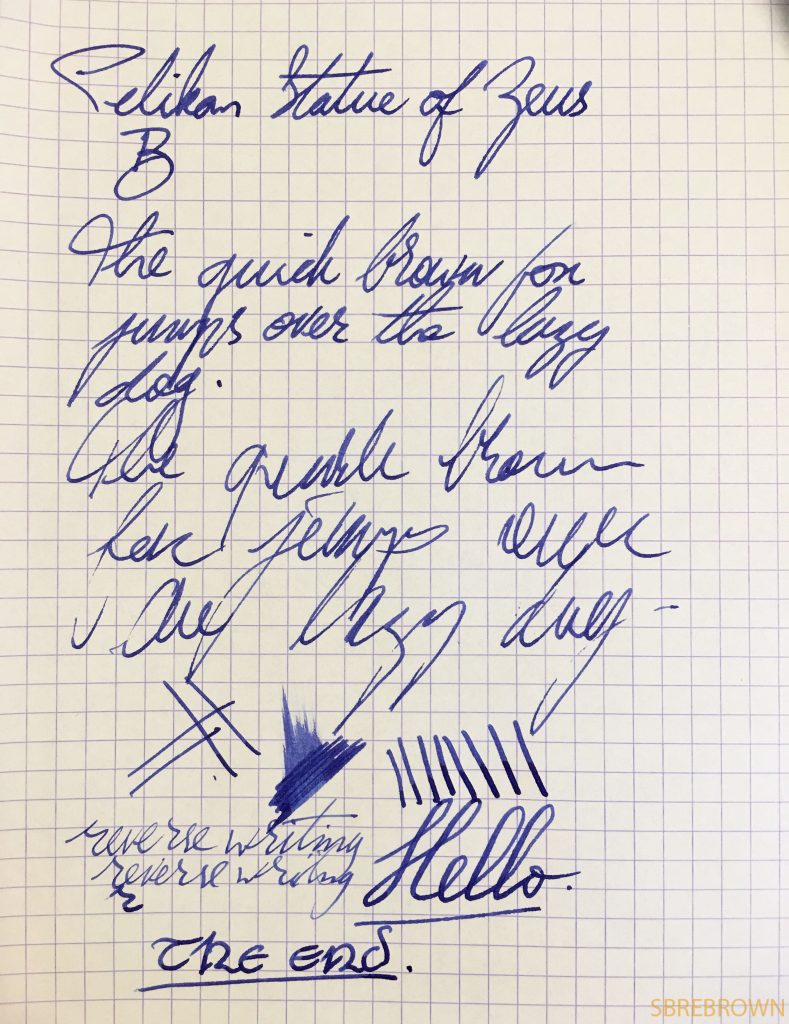 Pelikan Statue of Zeus
B
The quick brown fox
jumps over the lazy
dog.
The quick brown
fox jumps over
the lazy dog -
reverse writing
reverse writing
r
Hello.
THE END.
SBREBROWN